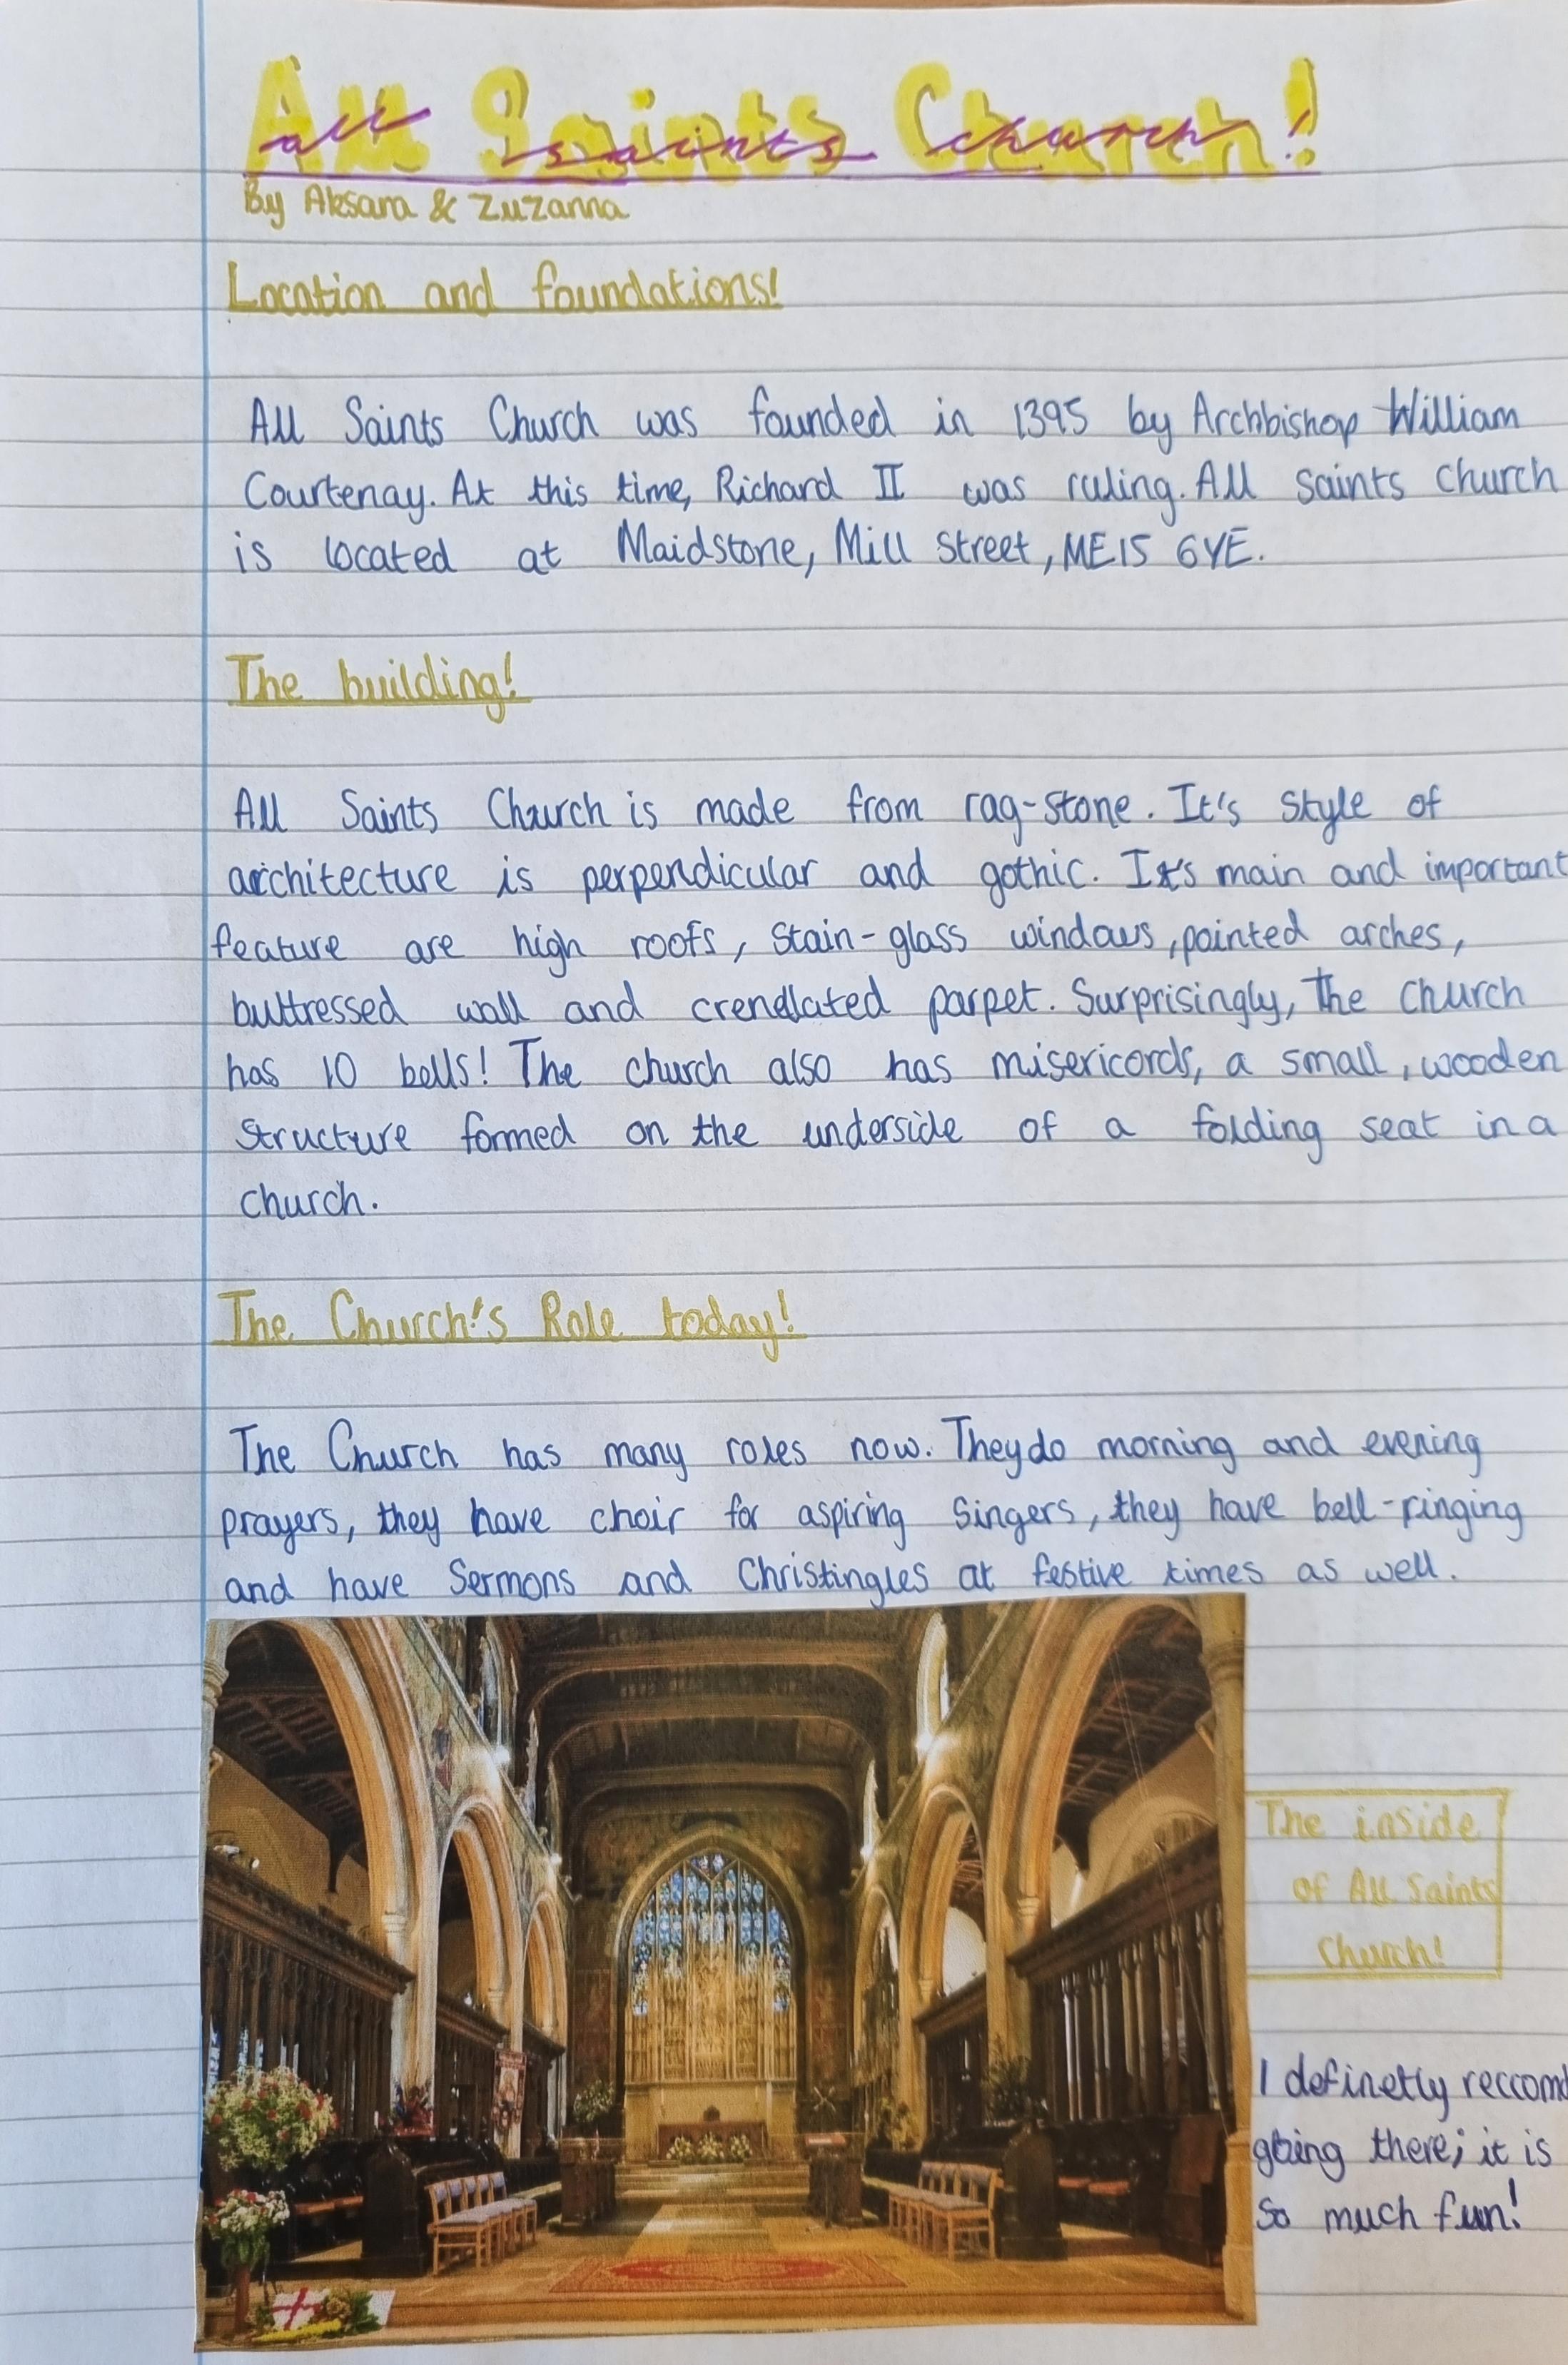 All Saints Church!
all saints church!
By Aksara & Zuzanna
Location and foundations!
All Saints Church was founded in 1395 by Archbishop William
Courtenay. At this time, Richard II was ruling. All saints church
is located at Maidstone, Mill street, ME15 6YE.
The building!
All Saints Church is made from rag-stone. It's style of
architecture is perpendicular and gothic. It's main and important
feature are high roofs, stain-glass windows, pointed arches,
buttressed wall and crenellated parpet. Surprisingly, The church
has 10 bells! The church also has misericords, a small, wooden
structure formed on the underside of a folding seat in a
church.
The Church's Role today!
The Church has many roles now. They do morning and evening
prayers, they have choir for aspiring singers, they have bell-ringing
and have Sermons and Christingles at festive times as well.
The inside
of All Saints
Church!
I definetly reccomd
going there; it is
so much fun!